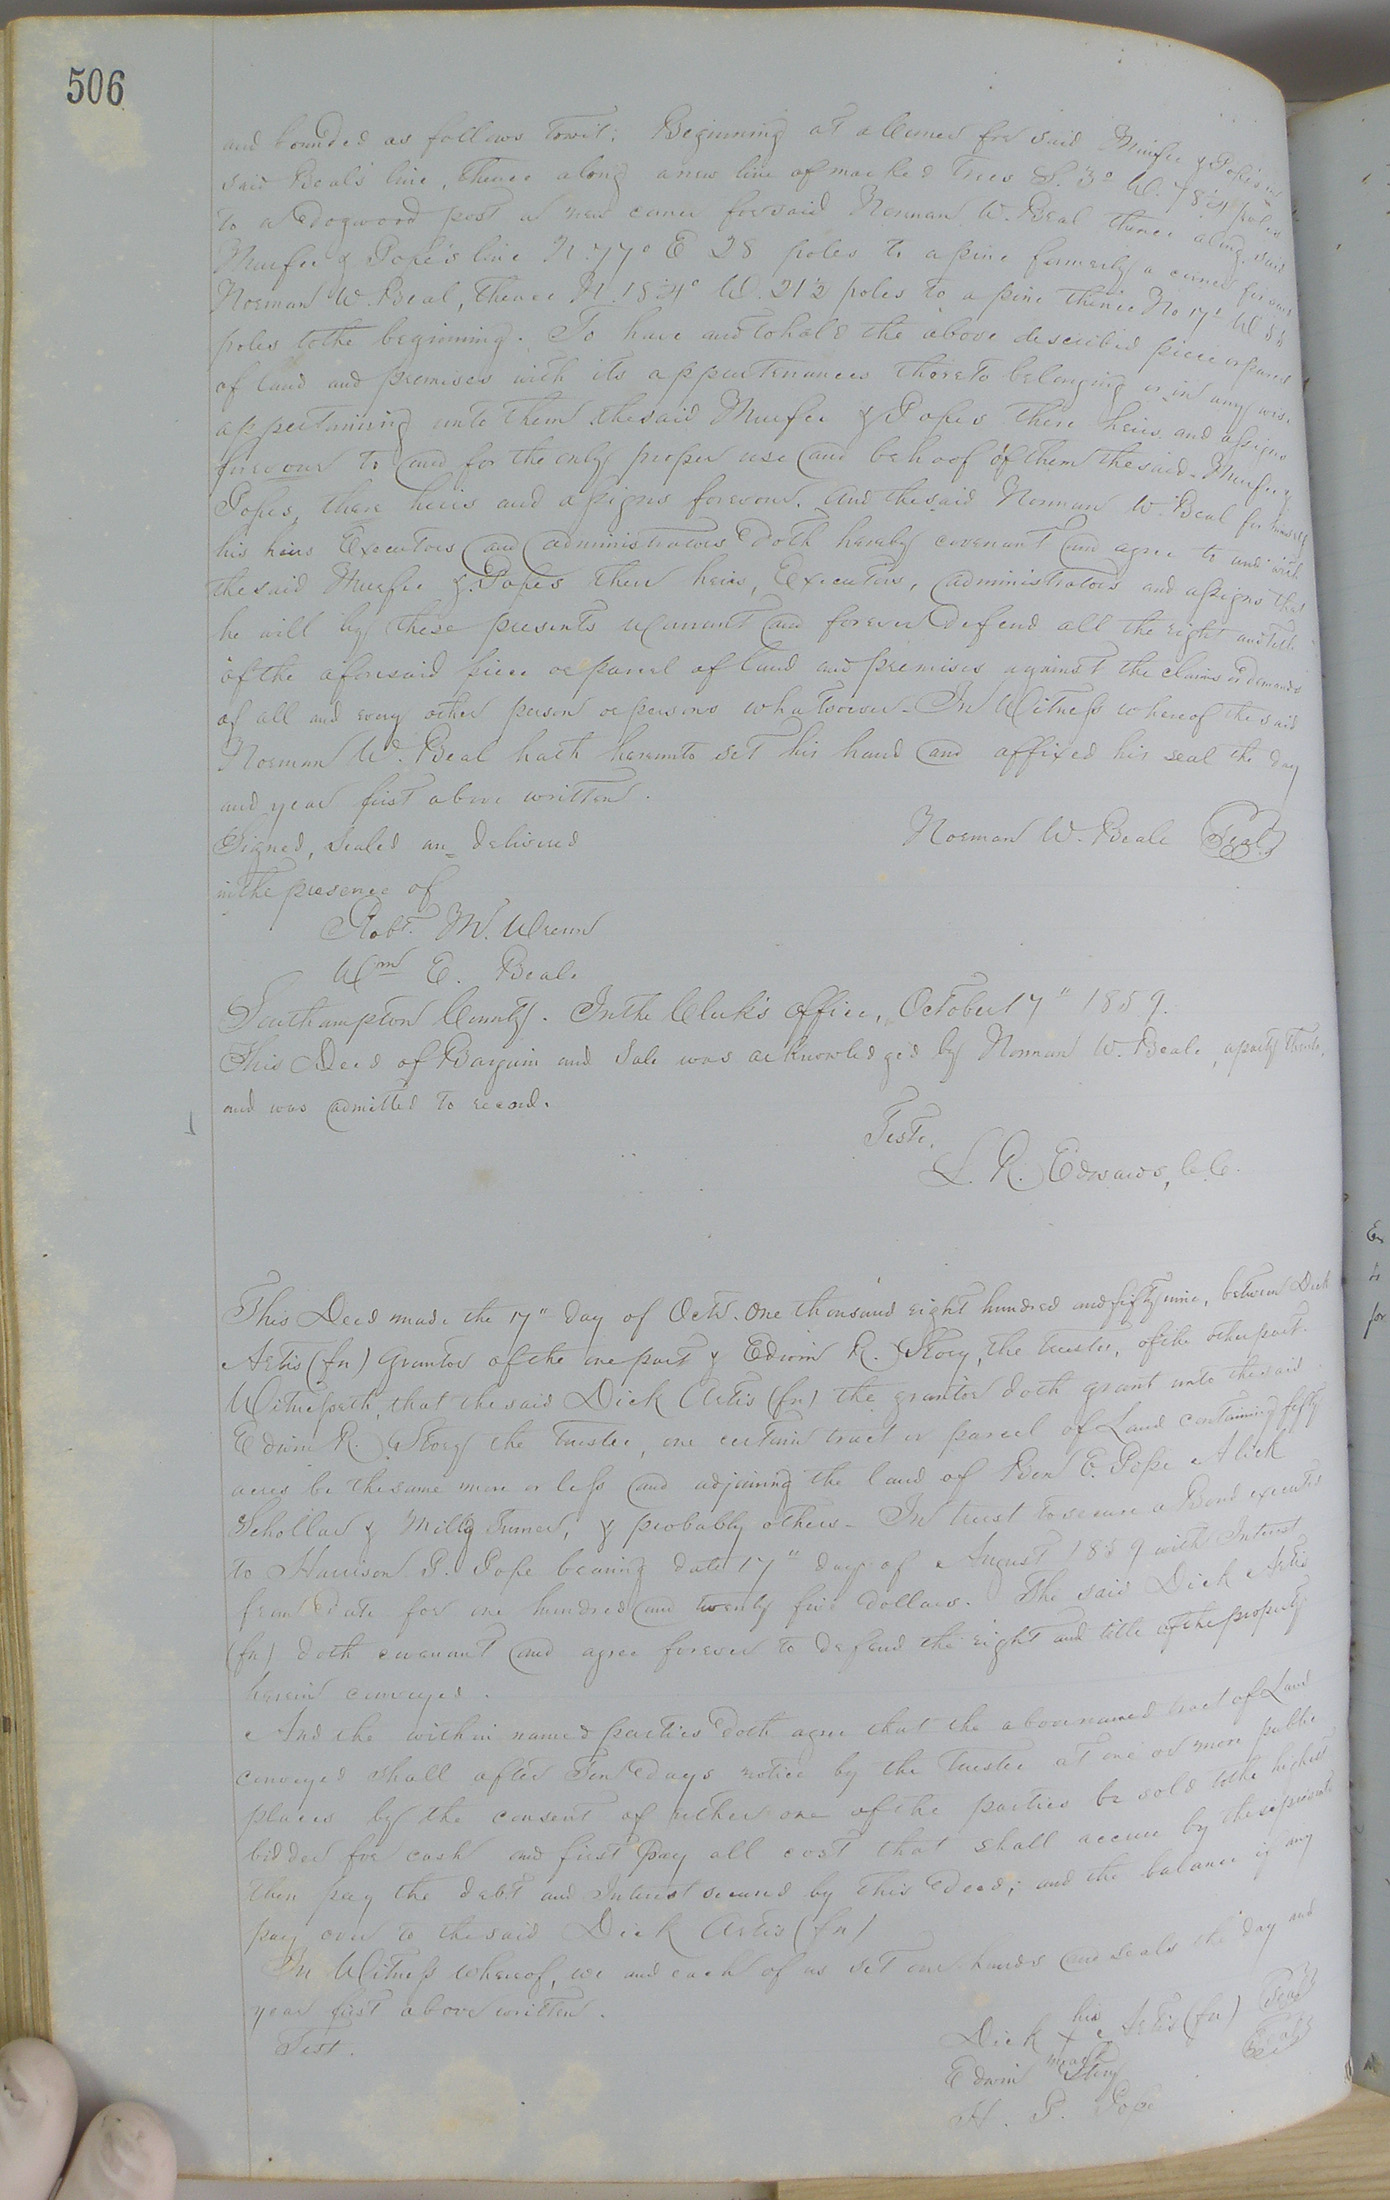 506
and bounded as follows towit: Beginning at a Corner for said Murfee & Popes in
said Beal's line, thence along a new line of marked trees S. 3° W. 78¾ poles
to a Dogwood post a new corner for said Norman W. Beal thence along said
Murfee & Pope's line N. 77° E 28 poles to a pine formerly a corner for said
Norman W. Beal, thence N. 18¾° W. 21½ poles to a pine thence No 17° W 58
poles to the beginning. To have and to hold the above described piece or parcel
of land and premises with its appurtenances thereto belonging or in any wise
appertaining unto them the said Murfee & Popes there heirs and assigns
forever to and for the only proper use and behoof of them the said Murfee &
Popes, there heirs and assigns forever. And the said Norman W. Beal for himself
his heirs Executors and administrators doth hereby covenant and agree to and with
the said Murfee & Popes their heirs, Executors, administrators and assigns that
he will by these presents warrant and forever defend all the right and title
of the aforesaid piece or parcel of land and premises against the claims or demands
of all and every other person or persons whatsoever. In Witness whereof the said
Norman W. Beal hath hereunto set his hand and affixed his seal the day
and year first above written.
Signed, Sealed and delivered Norman W. Beale Seal
in the presence of
Robt. M. Wrenn
Wm E. Beale
Southampton County. In the Clerk's office, October 17" 1859.
This Deed of Bargain and Sale was acknowledged by Norman W. Beale, a party thereto,
and was admitted to record.
Teste,
L. R. Edwards, C.C.
This Deed made the 17" day of Octr. One thousand eight hundred and fifty nine, between Dick
Artis (fn) Grantor of the one part & Edwin R. Story, the trustee, of the other part.
Witnesseth, that the said Dick Artis (fn) the grantor doth grant unto the said
Edwin R. Story the trustee, one certain tract or parcel of Land containing fifty
acres be the same more or less and adjoining the land of Ben E. Pope Alick
Schollar & Milly Turner, & probably others - In trust to secure a Bond executed
to Harrison P. Pope bearing date 17" day of August 1859 with Interest
from date for one hundred and twenty five dollars. The said Dick Artis
(fn) doth covenant and agree forever to defend the right and title of the property
herein conveyed.
And the within named parties doth agree that the above named tract of Land
conveyed shall after Ten days notice by the trustee at one or more public
places by the consent of either one of the parties be sold to the highest
bidder for cash and first pay all cost that shall accrue by these presents
then pay the debt and Interest secured by this deed; and the balance if any
pay over to the said Dick Artis (fn)
In Witness whereof, we and each of us set our hands and seals the day and
year first above written.
Test. Dick his X mark Artis (fn) Seal
Edwin Story Seal
H. P. Pope